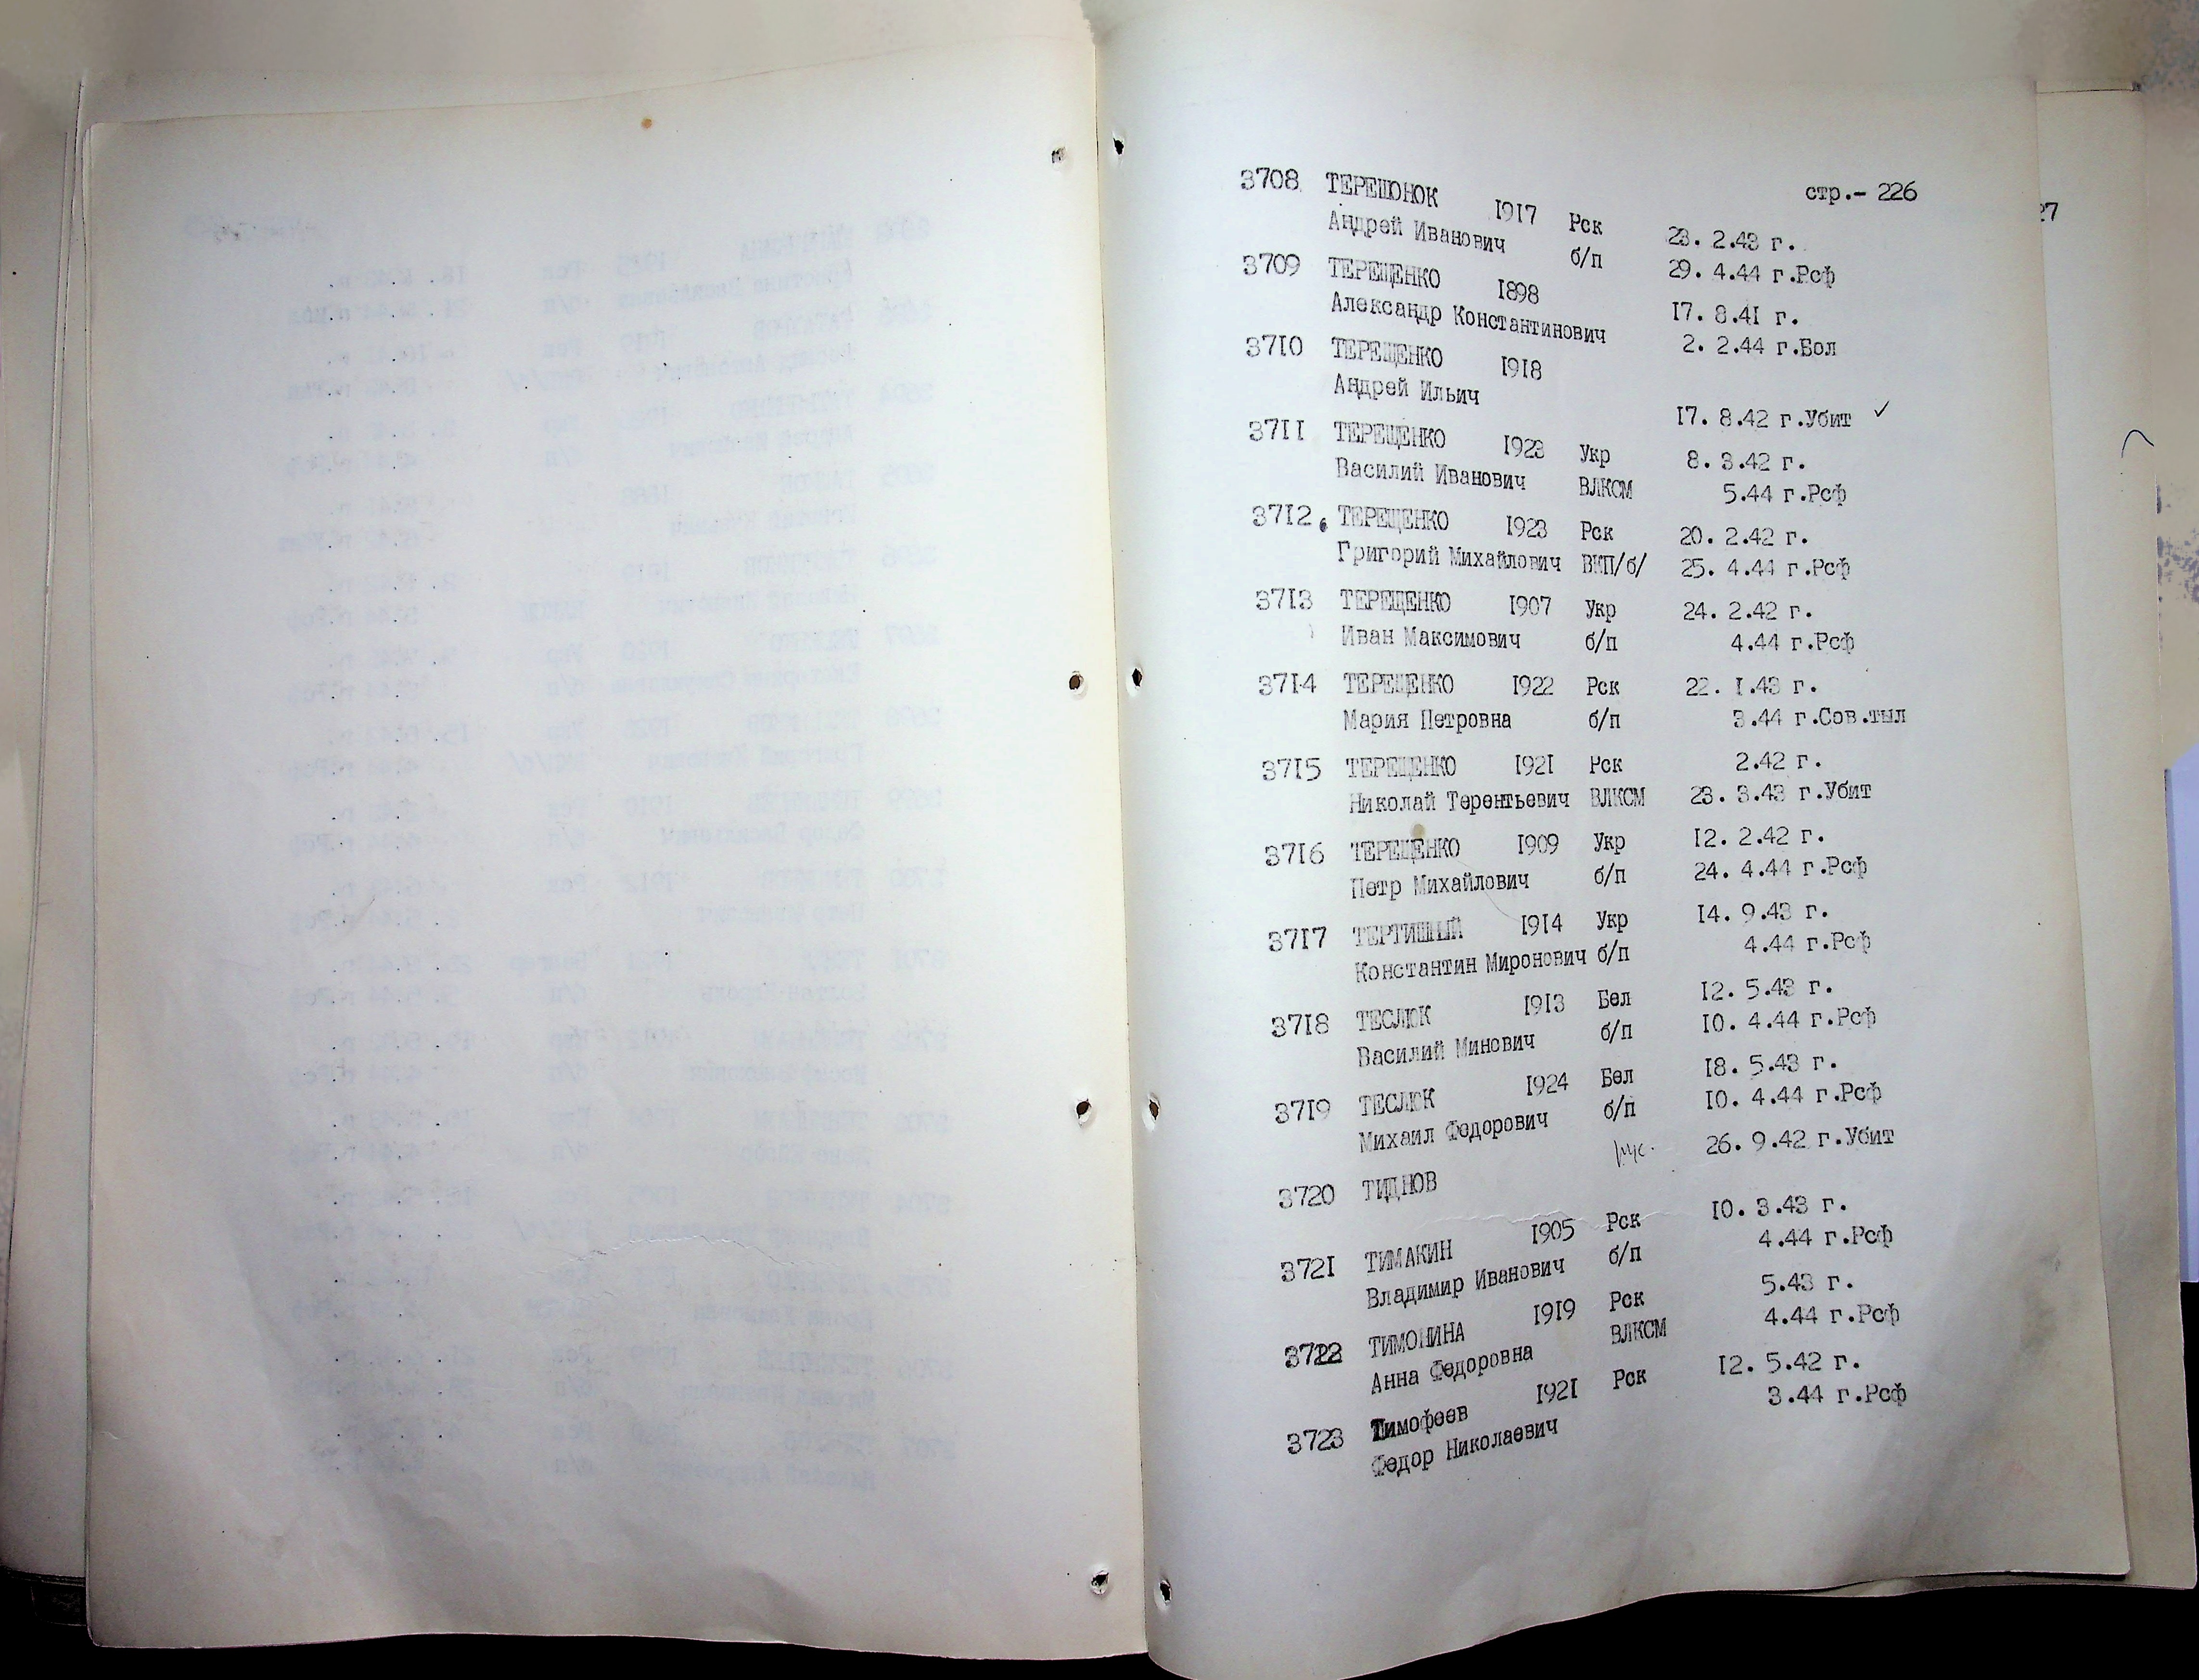 стр.- 226
27
3708 ТЕРЕШОНОК 1917 Рск 23. 2.43 г.
Андрей Иванович б/п 29. 4.44 г.Рсф
3709 ТЕРЕЩЕНКО 1898 17. 8.41 г.
Александр Константинович 2. 2.44 г.Бол
3710 ТЕРЕЩЕНКО 1918
Андрей Ильич 17. 8.42 г.Убит ✓
3711 ТЕРЕЩЕНКО 1923 Укр 8. 3.42 г.
Василий Иванович ВЛКСМ 5.44 г.Рсф
3712 ТЕРЕЩЕНКО 1923 Рск 20. 2.42 г.
Григорий Михайлович ВКП/б/ 25. 4.44 г.Рсф
3713 ТЕРЕЩЕНКО 1907 Укр 24. 2.42 г.
Иван Максимович б/п 4.44 г.Рсф
3714 ТЕРЕЩЕНКО 1922 Рск 22. 1.43 г.
Мария Петровна б/п 3.44 г.Сов.тыл
3715 ТЕРЕЩЕНКО 1921 Рск 2.42 г.
Николай Терентьевич ВЛКСМ 23. 3.43 г.Убит
3716 ТЕРЕЩЕНКО 1909 Укр 12. 2.42 г.
Петр Михайлович б/п 24. 4.44 г.Рсф
3717 ТЕРТИШНЫЙ 1914 Укр 14. 9.43 г.
Константин Миронович б/п 4.44 г.Рсф
3718 ТЕСЛЮК 1913 Бел 12. 5.43 г.
Василий Минович б/п 10. 4.44 г.Рсф
3719 ТЕСЛЮК 1924 Бел 18. 5.43 г.
Михаил Федорович б/п 10. 4.44 г.Рсф
3720 ТИДНОВ 26. 9.42 г.Убит
3721 ТИМАКИН 1905 Рск 10. 3.43 г.
Владимир Иванович б/п 4.44 г.Рсф
3722 ТИМОНИНА 1919 Рск 5.43 г.
Анна Федоровна ВЛКСМ 4.44 г.Рсф
3723 Тимофеев 1921 Рск 12. 5.42 г.
Федор Николаевич 3.44 г.Рсф